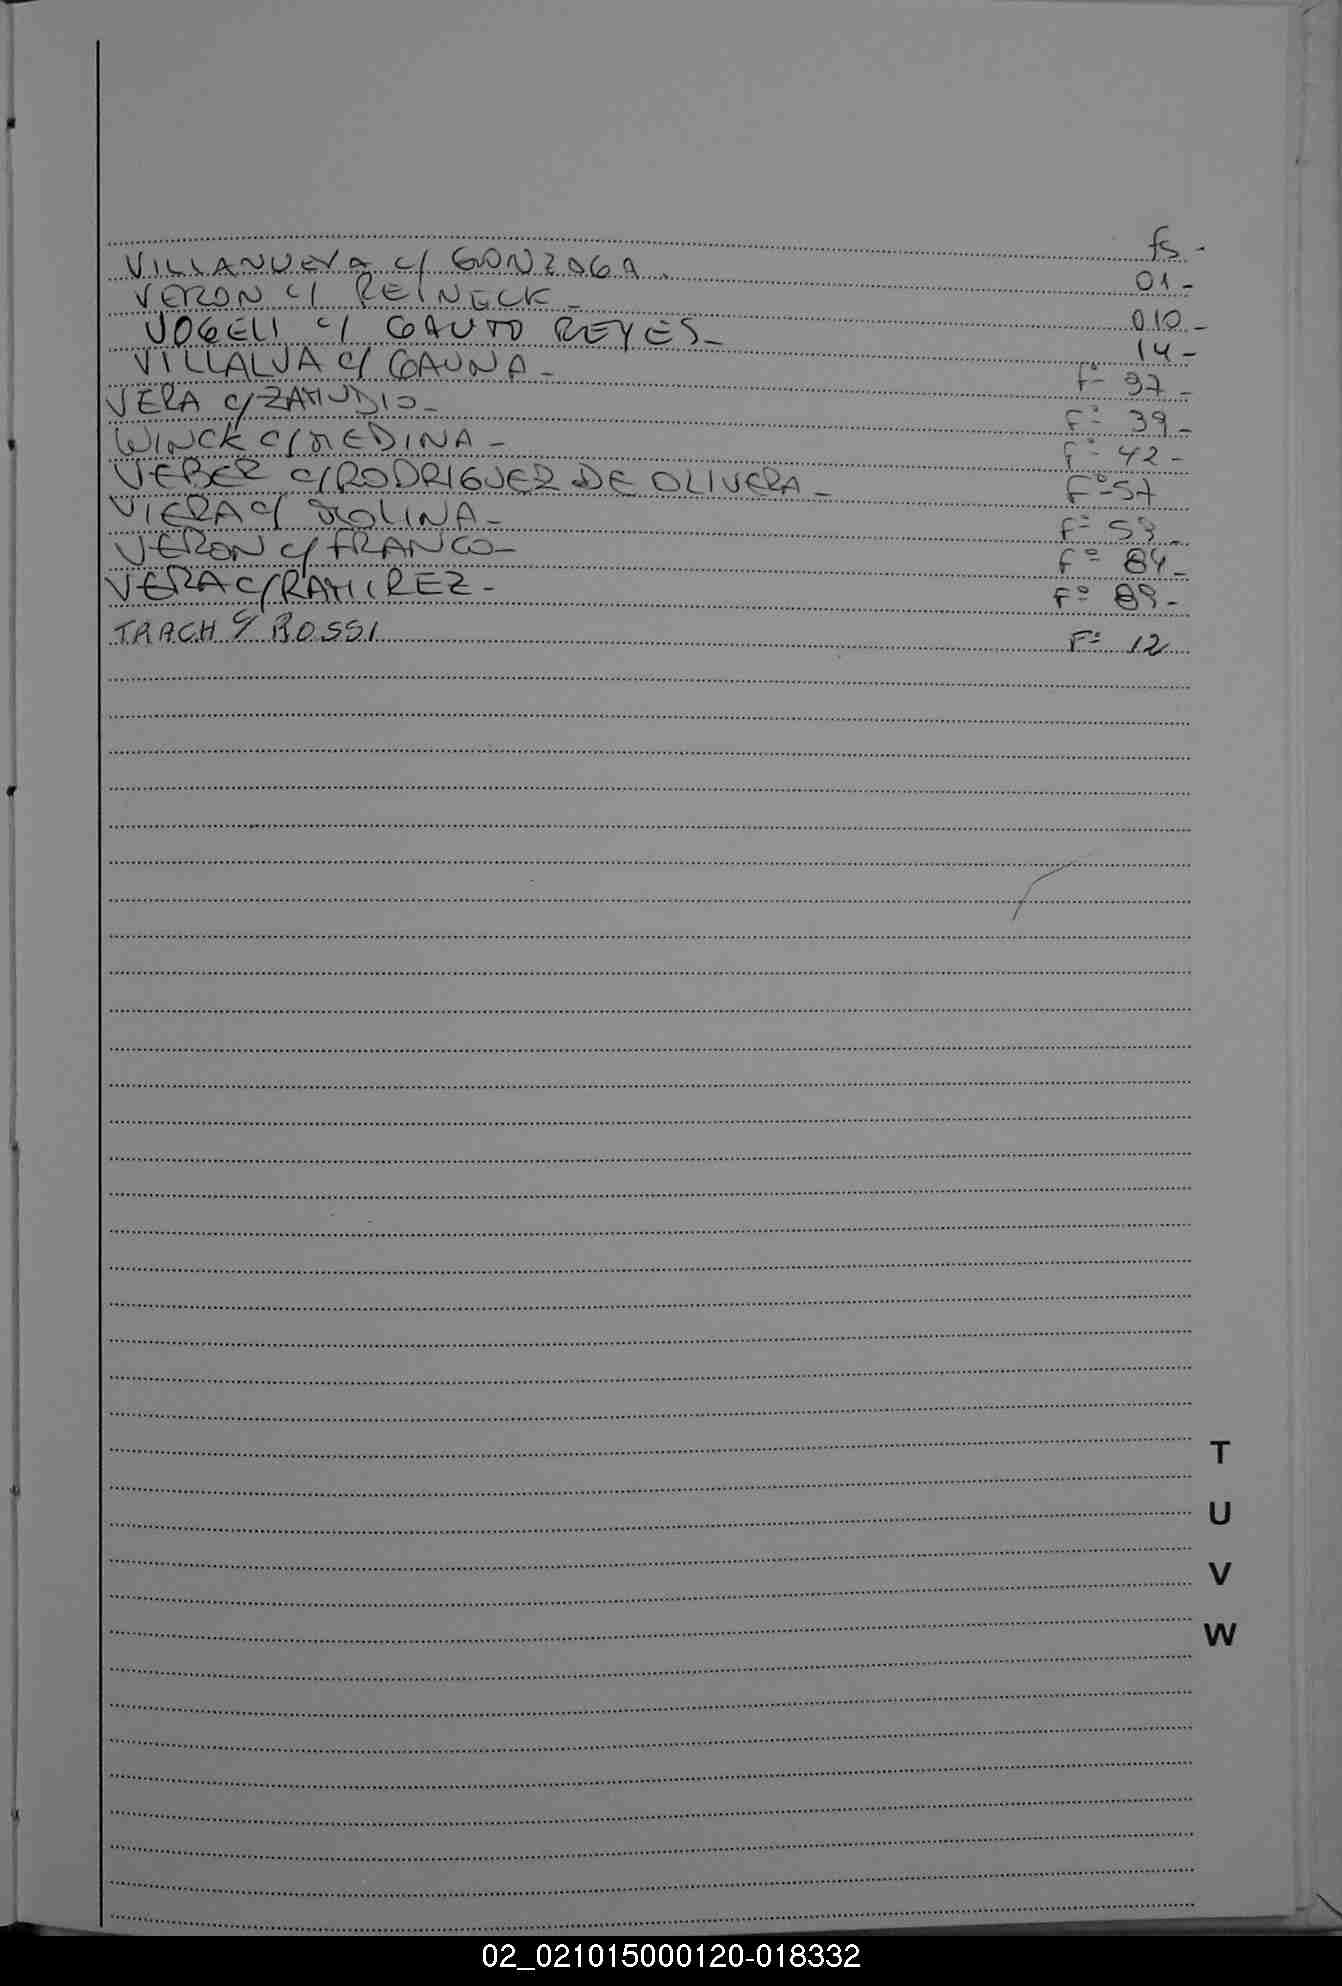 fs-
VILLANUEVA c/ GONZAGA. 01-
VERON c/ REINECK- 010-
VOGELI c/ GAUTO REYES- 14-
VILLALVA c/ GAUNA- Fº 37-
VERA c/ ZAMUDIO- Fº 39-
WINCK c/ MEDINA- Fº 42-
VEBER c/ RODRIGUEZ DE OLIVERA- Fº 57
VIERA c/ MOLINA- Fº 59-
VERON c/ FRANCO- Fº 84-
VERA c/ RAMIREZ- Fº 89-
TRACH c/ ROSSI Fº 12
T
U
V
W
02_021015000120-018332